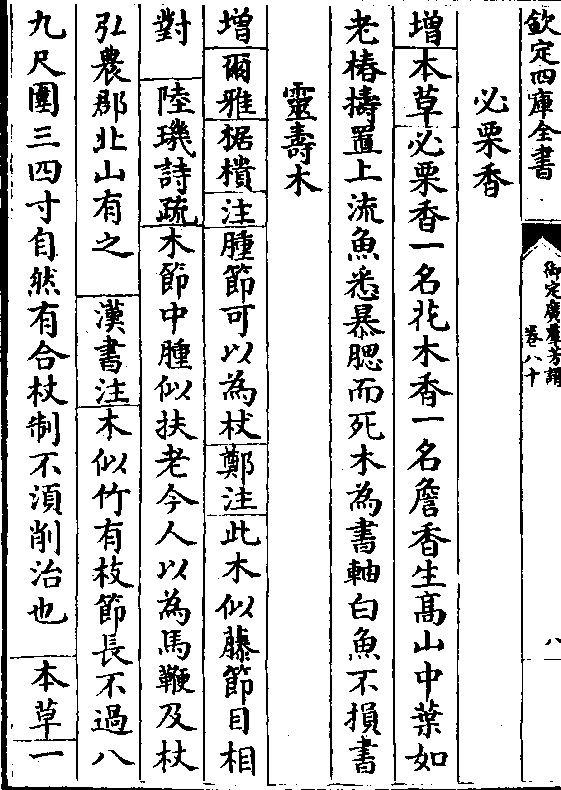 欽定四庫全書
御定廣羣芳譜
卷八十
八
必栗香
增本草必栗香一名花木香一名詹香生髙山中葉如
老椿擣置上流魚悉暴腮而死木為書軸白魚不損書
靈壽木
增爾雅椐樻注腫節可以為杖鄭注此木似藤節目相
對 陸璣詩疏木節中腫似扶老今人以為馬鞭及杖
弘農郡北山有之 漢書注木似竹有枝節長不過八
九尺圍三四寸自然有合杖制不湏削治也 本草一